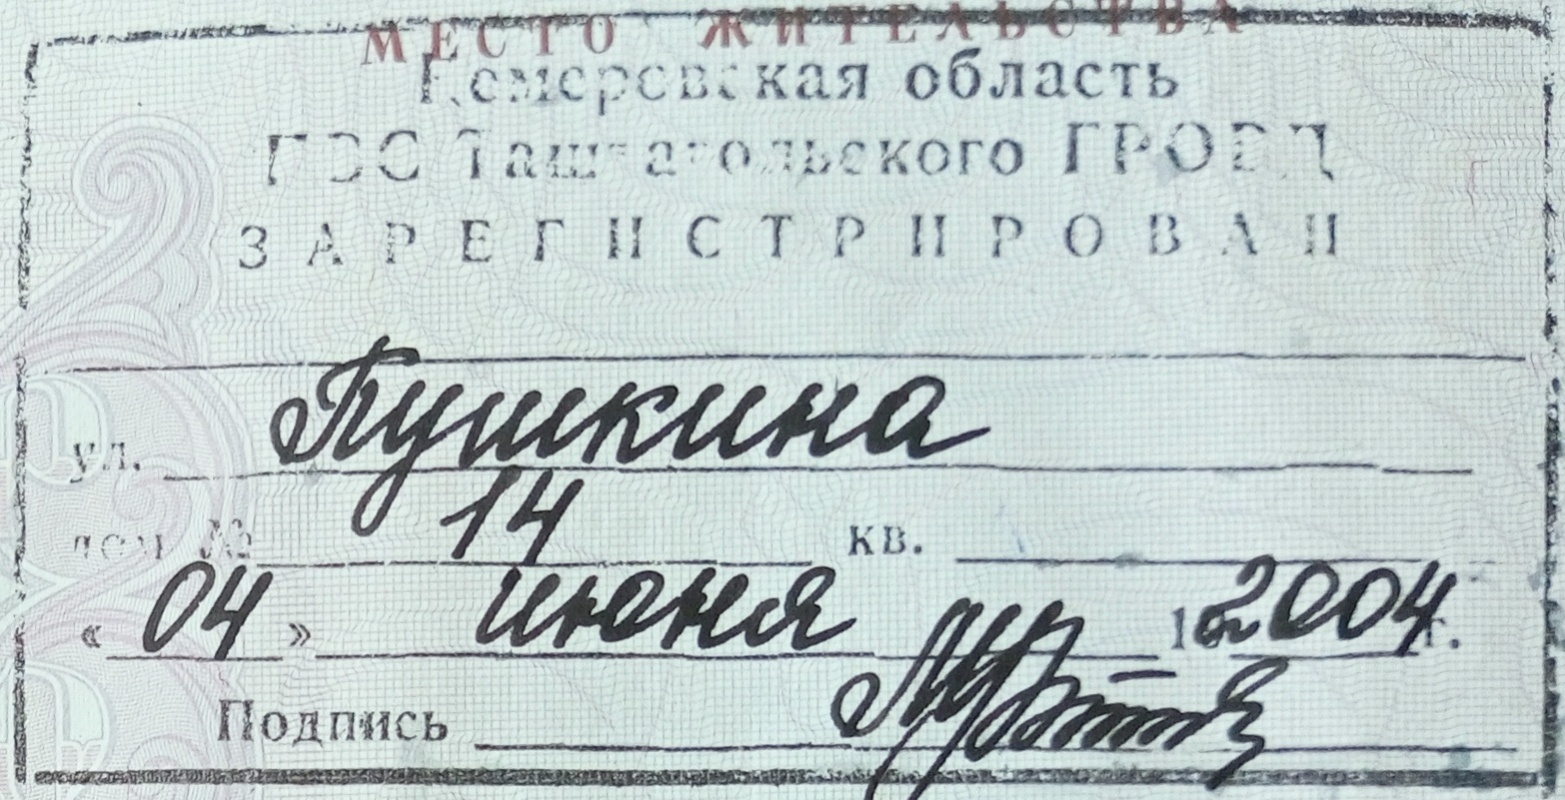 МЕСТО ЖИТЕЛЬСТВА
Кемеровская область
ПВС Таштагольского ГРОВД
ЗАРЕГИСТРИРОВАН
ул. Пушкина
дом № 14 кв.
« 04 » июня 2004 г.
Подпись